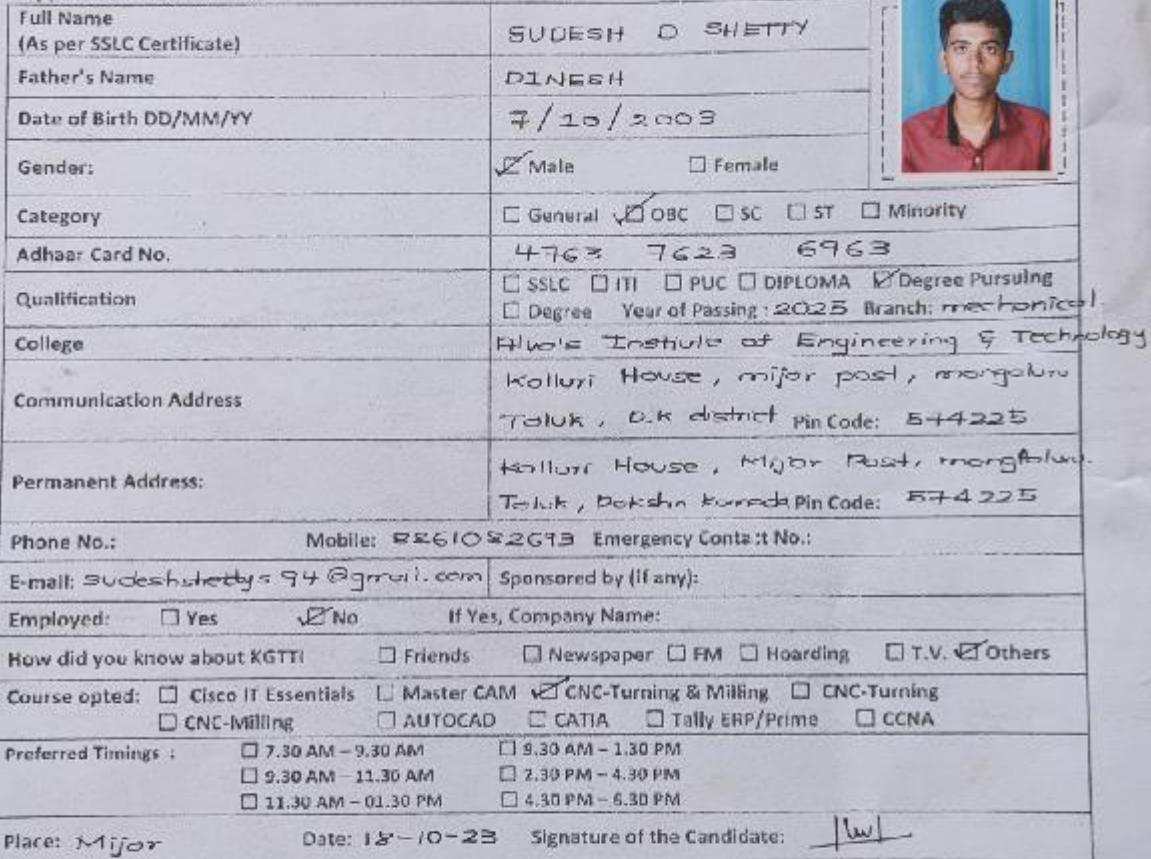 Full Name
(As per SSLC Certificate) SUDESH D SHETTY
Father's Name DINESH
Date of Birth DD/MM/YY 7/10/2003
Gender: ☑ Male ☐ Female
Category ☐ General ☑ OBC ☐ SC ☐ ST ☐ Minority
Adhaar Card No. 4763 7623 6963
Qualification ☐ SSLC ☐ ITI ☐ PUC ☐ DIPLOMA ☑ Degree Pursuing
☐ Degree Year of Passing: 2025 Branch: mechanical.
College Alva's Instiule of Engineering & Technology
Communication Address Kolluri House, mijar post, mangaluru
Taluk, D.K district Pin Code: 574225
Permanent Address: Kolluri House, Mijar Post,
Taluk, Pin Code: 574225
Phone No.: Mobile: Emergency Contact No.:
E-mail: sudeshshettys94@gmail.com Sponsored by (if any):
Employed: ☐ Yes ☑ No If Yes, Company Name:
How did you know about KGTTI ☐ Friends ☐ Newspaper ☐ FM ☐ Hoarding ☐ T.V. ☑ Others
Course opted: ☐ Cisco IT Essentials ☐ Master CAM ☑ CNC-Turning & Milling ☐ CNC-Turning
☐ CNC-Milling ☐ AUTOCAD ☐ CATIA ☐ Tally ERP/Prime ☐ CCNA
Preferred Timings : ☐ 7.30 AM – 9.30 AM ☐ 9.30 AM – 1.30 PM
☐ 9.30 AM – 11.30 AM ☐ 2.30 PM – 4.30 PM
☐ 11.30 AM – 01.30 PM ☐ 4.30 PM – 6.30 PM
Place: Mijar Date: 18-10-23 Signature of the Candidate: